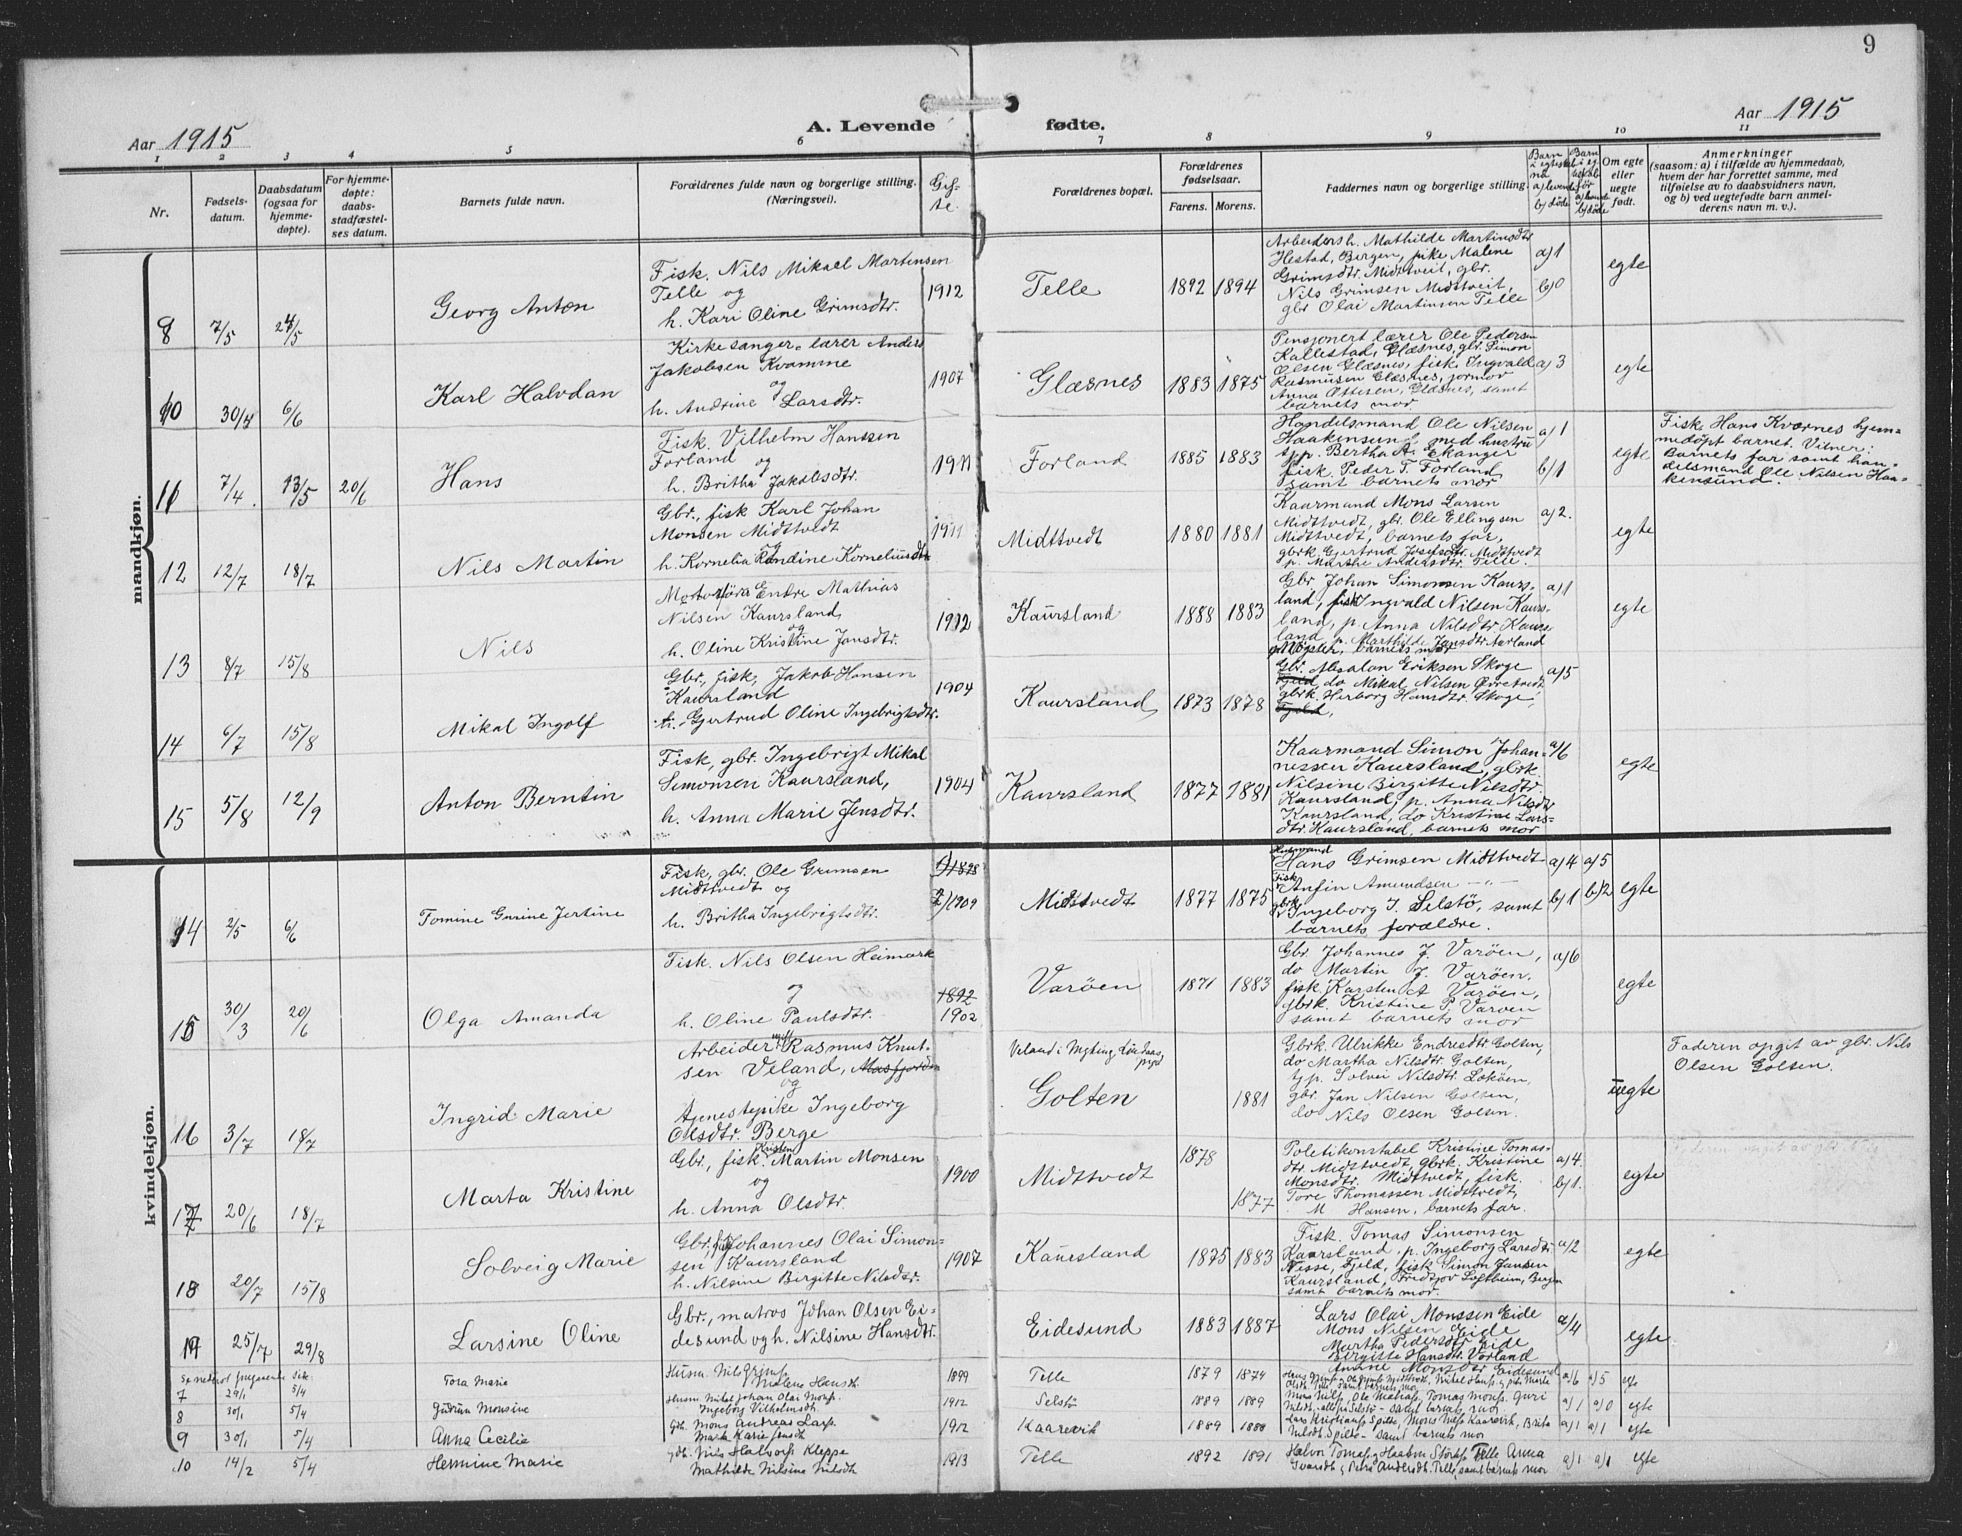 9
Aar 1915
A. Levende fødte.
Aar 1915
1 2 3 4 5 6 7 8 9 10 11
Nr.
Fødsels-
datum.
Daabsdatum
(ogsaa for
hjemme-
døpte).
For hjemme-
døpte:
daabs-
stadfæstel-
ses datum.
Barnets fulde navn.
Forældrenes fulde navn og borgerlige stilling.
(Næringsvei).
Gif-
te.
Forældrenes bopæl.
Forældrenes
fødselsaar.
Farens. Morens.
Faddernes navn og borgerlige stilling.
Om egte
eller
uegte
født.
Anmerkninger
(saasom: a) i tilfælde av hjemmedaab,
hvem der har forrettet samme, med
tilføielse av to daabsvidners navn,
og b) ved uegtefødte barn anmel-
derens navn m. v.).
mandkjøn.
8 7/5 24/5 Georg Anton
Fisk. Nils Mikael Martensen
Telle og
h. Kari Oline Grimsdtr.
1912 Telle 1892 1894
Arbeidersh. Mathilde Martinsdtr
Hestad, Bergen, pike Malene
Grimsdtr. Midtveit, gbr.
Nils Grimsen Midtveit,
gbr Olai Martinsen Telle
a/1
b/0
egte
10 30/4 6/6 Karl Halvdan
Kirkesanger, lærer Anders
Jakobsen Kvamme
og
h. Andrine Larsdtr.
1907 Glæsnes 1883 1875
Pensjonert lærer Ole Pedersen
Kallestad, Glæsnes, gbr. Simon
Olsen Glæsnes, fisk. Ingvald
Rasmusen Glæsnes, jormor
Anna Ottesen, Glæsnes, samt
barnets mor.
a/3
egte
11 7/4. 13/5 20/6 Hans
Fisk. Vilhelm Hanssen
Forland og
h. Britha Jakobsdtr.
1911 Forland 1885 1883
Handelsmand Ole Nilsen
Haakensund, med hustru
tj.p. Bertha A. Ekanger
fisk. Peder T. Forland
samt barnets mor
a/1
b/1
egte
Fisk. Hans Kværnes hjem-
medöpt barnet. Vitner:
Barnets far samt han-
delsmand Ole Nilsen Haa-
kensund.
12 12/7 18/7 Nils Martin
Gbr., fisk Karl Johan
Monsen Midttvedt
og
h. Kornelia Randine Korneliusdtr
1911 Midttvedt 1880 1881
Kaarmand Mons Larsen
Midttvedt, gbr. Ole Ellingsen
Midttvedt, barnets far,
gbrk. Gjertrud Josefsdtr. Midttvedt
p. Marthe Andersdtr. Telle.
a/2.
egte
13 8/7 15/8 Nils
Mathias
Nilsen Kaursland,
og
h. Oline Kristine Jansdtr.
1912 Kaursland 1888 1883
Gbr Johan Simonsen Kaurs-
land, fisk Ingvald Nilsen Kaurs-
land, p. Anna Nilsdtr Kaurs-
land p. Marthilde Jansdtr Aarland
barnets mor
a/1
egte
14 6/7 15/8 Mikal Ingolf
Gbr., fisk, Jakob Hansen
Kaursland
h. Gjertrud Oline Ingebrigtsdtr.
1904 Kaursland 1873 1878
Gbr. Absalon Eriksen Skoge
do Mikal Nilsen Övretvedt
gbrk. Herborg Hansdtr. Skoge,
a/5
15 5/8 12/9 Anton Berntin
Fisk, gbr. Ingebrigt Mikal
Simonsen Kaursland,
h. Anna Marie Jensdtr.
1904 Kaursland 1877 1881
Kaarmand Simon Johan-
nessen Kaursland, gbrk.
Nilsine Birgitte Nilsdtr.
Kaursland, p. Anna Nilsdtr
Kaursland, do Kristine Lars-
dtr. Kaursland, barnets mor
a/6
egte
kvindekjøn.
14 2/5 6/6 Tomine Gurine Jertine
Fisk, gbr. Ole Grimsen
Midttvedt og
h. Britha Ingebrigtsdtr.
1) 1898
2) 1909
Midttvedt 1877 1875
Husmand
Hans Grimsen Midttvedt
Fisk.
Anfin Amundsen -"-
gbrk.
Ingeborg J. Selstö, samt
barnets forældre.
a/4 a/5
b/1 b/2
egte
15 30/3 20/6 Olga Amanda
Fisk. Nils Olsen Heimark
og
h. Oline Paulsdtr.
1892
1902
Varöen 1871 1883
Gbr. Johannes J. Varöen,
do Martin J. Varöen,
fisk. Karsten A Varöen,
gbrk. Kristine P. Varöen
samt barnets mor
a/6
egte
16 3/7 18/7 Ingrid Marie
Arbeider Rasmus Knut-
sen Veland, Masfjorden
og
tjenestepike Ingeborg
Olsdtr. Berge
Golten 1881
Gbrk. Ulrikke Endresdtr Golten,
do Martha Nilsdtr. Golten,
tj.p. Solvei Nilsdtr. Loköen,
gbr. Jan Nilsen Golten,
do Nils Olsen Golten.
uegte
Faderen opgit av gbr. Nils
Olsen Golten.
17 20/6 18/7 Marta Kristine
Kristen
Gbr., fisk. Martin Monsen
og
h. Anna Olsdtr.
1900 Midttvedt 1878 1877
Poletikonstabel Kristine Tomas-
dtr. Midttvedt, gbrk. Kristine
Monsdtr. Midttvedt, fisk.
Tore Thomassen Midttvedt,
M Hansen, barnets far.
a/4.
b/1.
egte
18 20/7 15/8 Solveig Marie
Gbr., fisk Johannes Olai Simon-
sen Kaursland
h. Nilsine Birgitte Nilsdtr.
1907 Kaursland 1875 1883
Fisk. Tomas Simonsen
Kaursland, p. Ingeborg Larsdtr.
Nesse, Fjeld, fisk Simon Jansen
Kaursland, Fredtjov Loftheim, Bergen
samt barnets mor.
a/2
egte
19 25/7 29/8 Larsine Oline
Gbr., matros Johan Olsen Ei-
desund og h. Nilsine Hansdtr.
Eidesund 1883 1887
Lars Olai Monssen Eide
Mons Nilsen Eide
Martha Pedersdtr Eide
Birgitte Hansdtr. Vorland
Anine Monsdtr Eidesund
a/4
egte
7 29/1 5/4 Tora Marie
Malene Hansdt.
1899 Telle 1879 1874
a/6 a/5 egte
8 30/1 5/4 Gudrun Monsine
Ingeborg Vilhelmsdt
1912 Selstö 1889 1889
a/1 a/0 egte
9 30/1 5/4 Anna Cecilie
Mons Andreas Larss.
Marta Karie Jensdt
1912 Kaarevik 1889 1888
a/1 a/1 egte
10 14/2 5/4 Hermine Marie
Nils Halvorss Kleppe
Mathilde Nilsine Nilsdt
1913 Telle 1892 1891
a/1 a/1 egte